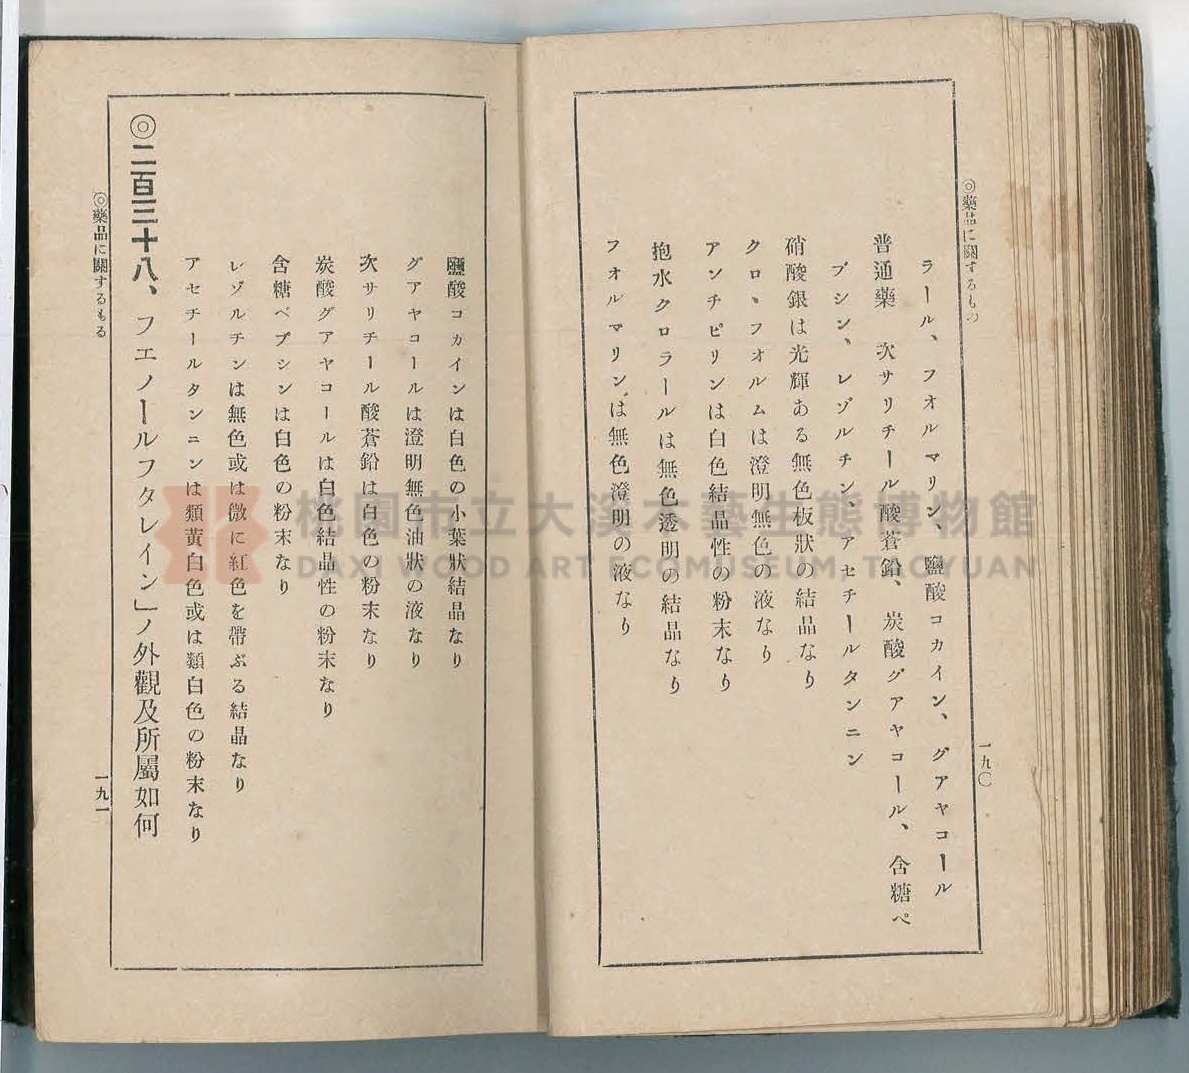 ◎藥品に關するもの
一九〇
ラール、フオルマリン、鹽酸コカイン、グアヤコール
普通藥 次サリチール酸蒼鉛、炭酸グアヤコール、含糖ペ
プシン、レゾルチン、アセチールタンニン
硝酸銀は光輝ある無色板狀の結晶なり
クロヽフオルムは澄明無色の液なり
アンチピリンは白色結晶性の粉末なり
抱水クロラールは無色透明の結晶なり
フオルマリンは無色澄明の液なり
鹽酸コカインは白色の小葉狀結晶なり
グアヤコールは澄明無色油狀の液なり
次サリチール酸蒼鉛は白色の粉末なり
炭酸グアヤコールは白色結晶性の粉末なり
含糖ペプシンは白色の粉末なり
レゾルチンは無色或は微に紅色を帶ぶる結晶なり
アセチールタンニンは類黃白色或は類白色の粉末なり
◎二百三十八、フエノールフタレイン」ノ外觀及所屬如何
◎藥品に關するもる
一九一
桃園市立大溪木藝生態博物館
DAXI WOOD ART ECOMUSEUM, TAOYUAN